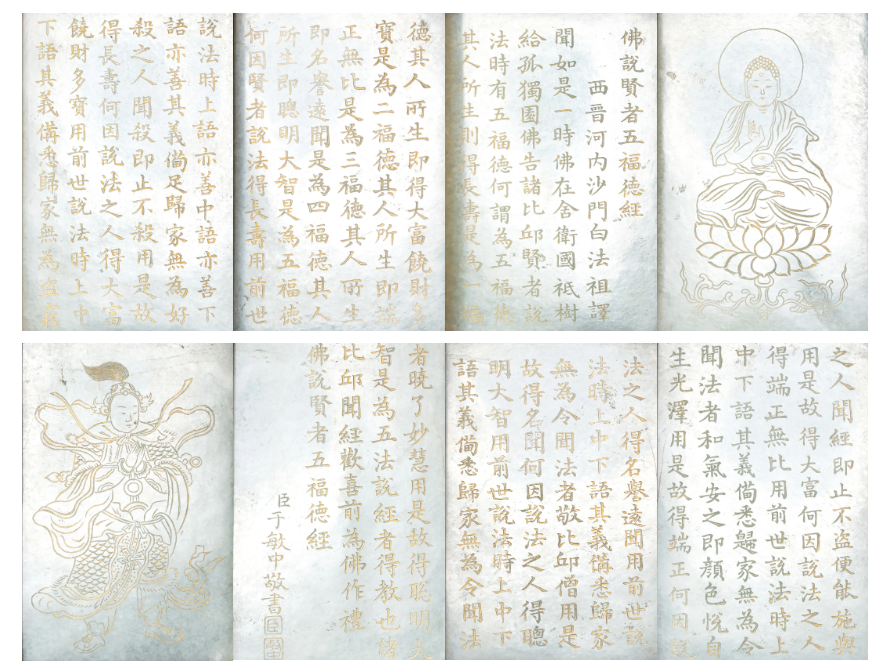 佛說賢者五福德經
西晉河內沙門白法祖譯
聞如是一時佛在舍衛國祇樹
給孤獨園佛告諸比邱賢者說
法時有五福德何謂為五福德
其人所生則得長壽是為一福
德其人所生即得大富饒財多
寶是為二福德其人所生即端
正無比是為三福德其人所生
即名譽遠聞是為四福德其人
所生即聰明大智是為五福德
何因賢者說法得長壽用前世
說法時上語亦善中語亦善下
語亦善其義備足歸家無為好
殺之人聞殺即止不殺用是故
得長壽何因說法之人得大富
饒財多寶用前世說法時上中
下語其義備悉歸家無為盜竊
之人聞經即止不盜便能施與
用是故得大富何因說法之人
得端正無比用前世說法時上
中下語其義備悉歸家無為令
聞法者和氣安之即顏色悅自
生光澤用是故得端正何因說
法之人得名譽遠聞用前世說
法時上中下語其義備悉歸家
無為令聞法者敬比邱僧用是
故得名聞何因說法之人得聰
明大智用前世說法時上中下
語其義備悉歸家無為令聞法
者曉了妙慧用是故得聰明大
智是為五法說經者得教也諸
比邱聞經歡喜前為佛作禮
佛說賢者五福德經
臣于敏中敬書